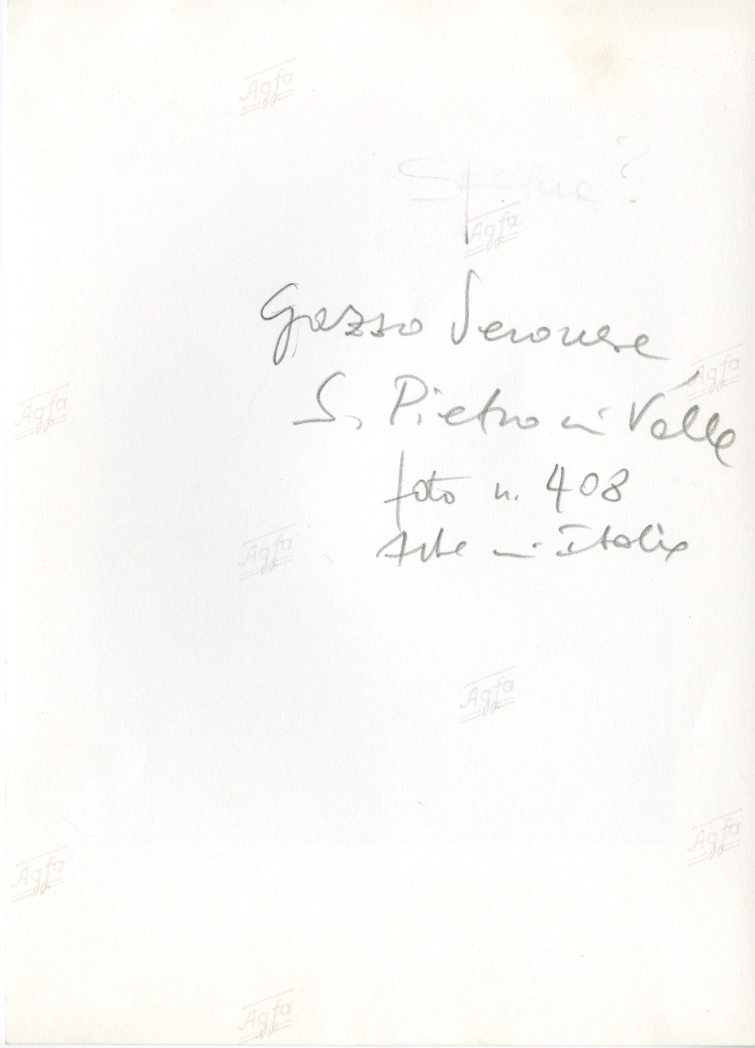 Agfa
Spagna?
Agfa
Gazzo Veronese
Agfa
S. Pietro in Valle
Agfa
foto n. 408
Arte in Italia
Agfa
Agfa
Agfa
Agfa
Agfa